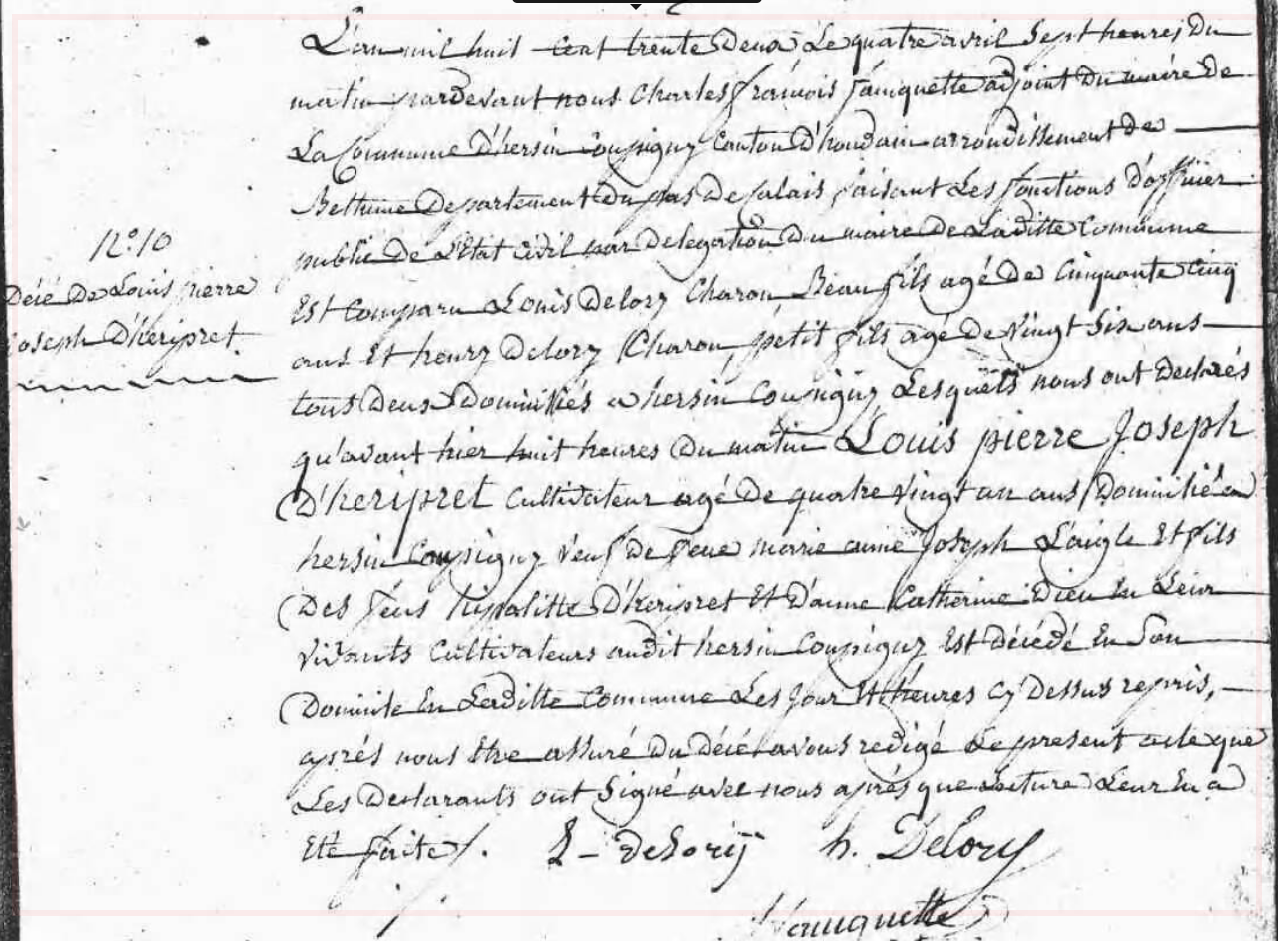 L'an mil huit cent trente Deux Le quatre avril Sept heures Du
matin pardevant nous Charles françois fauquette adjoint Du maire De
La Commune D'hersin Coupigny Canton D'houdain arrondissement De
Bethune Departement Du pas De Calais faisant Les fonctions D'officier
public De L'Etat Civil par Delegation Du maire De Laditte Commune
N.° 10
Décé De Louis pierre
Joseph D'heripret
Est Comparu Louis Delory Charon Beau fils agé De Cinquante Cinq
ans Et henry Delory Charon, petit fils agé De Vingt Six ans
tous Deux Domiciliés a hersin Coupigny Lesquels nous ont Declarés
qu'avant hier huit heures Du matin Louis pierre Joseph
D'heripret Cultivateur agé De quatre Vingt un ans Domicilié a
hersin Coupigny Veuf De feue marie anne Joseph L'aigle Et fils
Des feus hipolitte D'heripret Et D'anne Catherine Dieu En Leur
Vivants Cultivateurs audit hersin Coupigny Est Décédé En Son
Domicile En Laditte Commune Les Jour Et heures Cy Dessus repris,
aprés nous Etre assuré Du Décé avons redigé Le present acte que
Les Declarants ont Signé avec nous aprés que Lecture Leur En a
Eté faite /.   L - deLorij   h. Delory